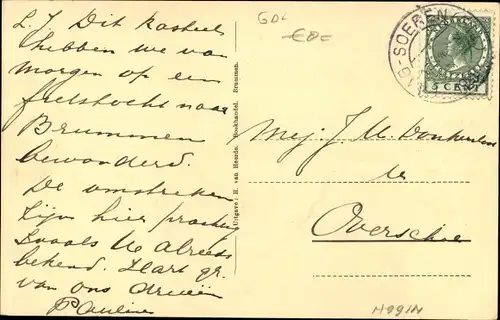 L. J. Dit kasteel
hebben we van
morgen op een
fietstocht naar
Brummen
bewonderd.
De omstreken
zijn hier prachtig
zooals U alreeds
bekend. Hart. gr.
van ons drieën
Pauline
Uitgave: H. van Heerde, Boekhandel, Brummen.
GDL
€8=
SOEREN
5 CENT
Mej. J. M. Donkersloot
te
Overschie
H991N